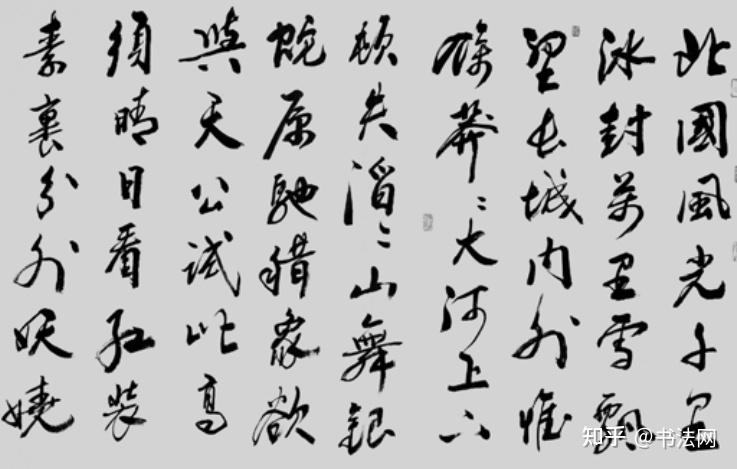 北國風光千里
冰封萬里雪飄
望長城內外惟
餘莽〻大河上下
頓失滔〻山舞銀
蛇原馳猎象欲
與天公試比高
須晴日看紅裝
素裹分外妖嬈
知乎 @书法网